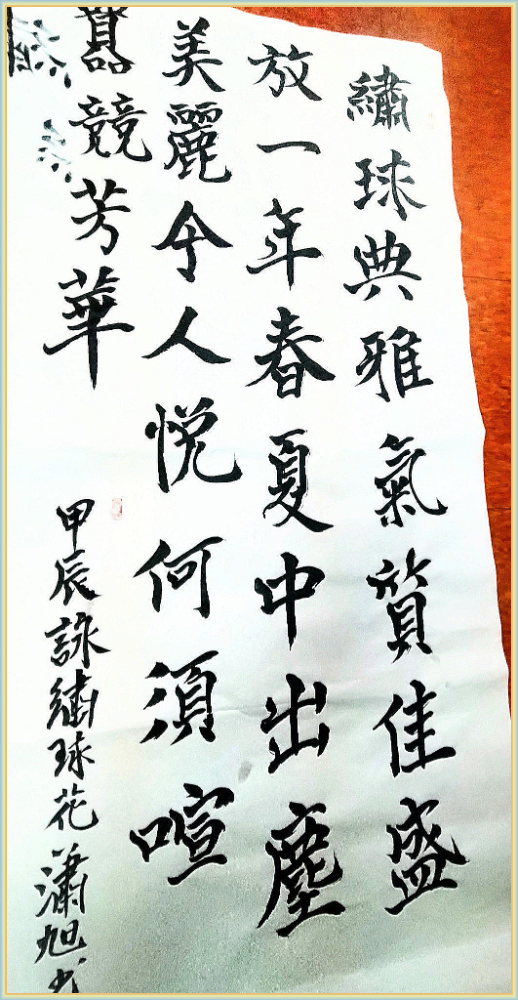 繡球典雅氣質佳盛
放一年春夏中出塵
美麗令人悅何須喧
囂競芳華
甲辰詠繡球花瀟旭书